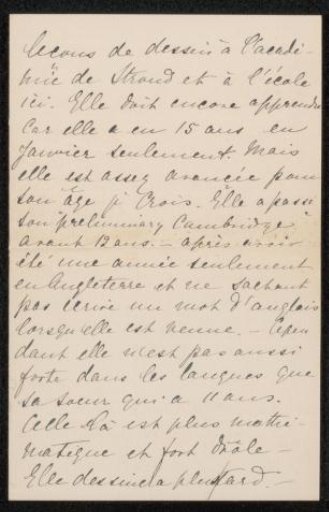 leçons de dessin à l'acadé-
mie de Stroud et à l'école
ici. Elle doit encore apprendre
car elle a eu 15 ans en
Janvier seulement. Mais
elle est assez avancée pour
son âge je crois. Elle a passé
son "preliminary Cambridge"
avant 12 ans. – après avoir
été une année seulement
en Angleterre et ne sachant
pas écrire un mot d'anglais
lorsqu'elle est venue. – Cepen
dant elle n'est pas aussi
forte dans les langues que
sa soeur qui a 11 ans.
Celle là est plus mathé-
matique et fort drôle –
Elle dessinera plus tard. –